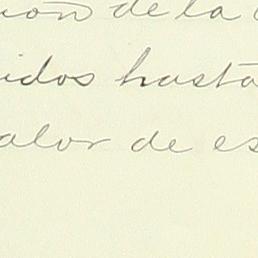 ion de la
idos hasta
alor de es